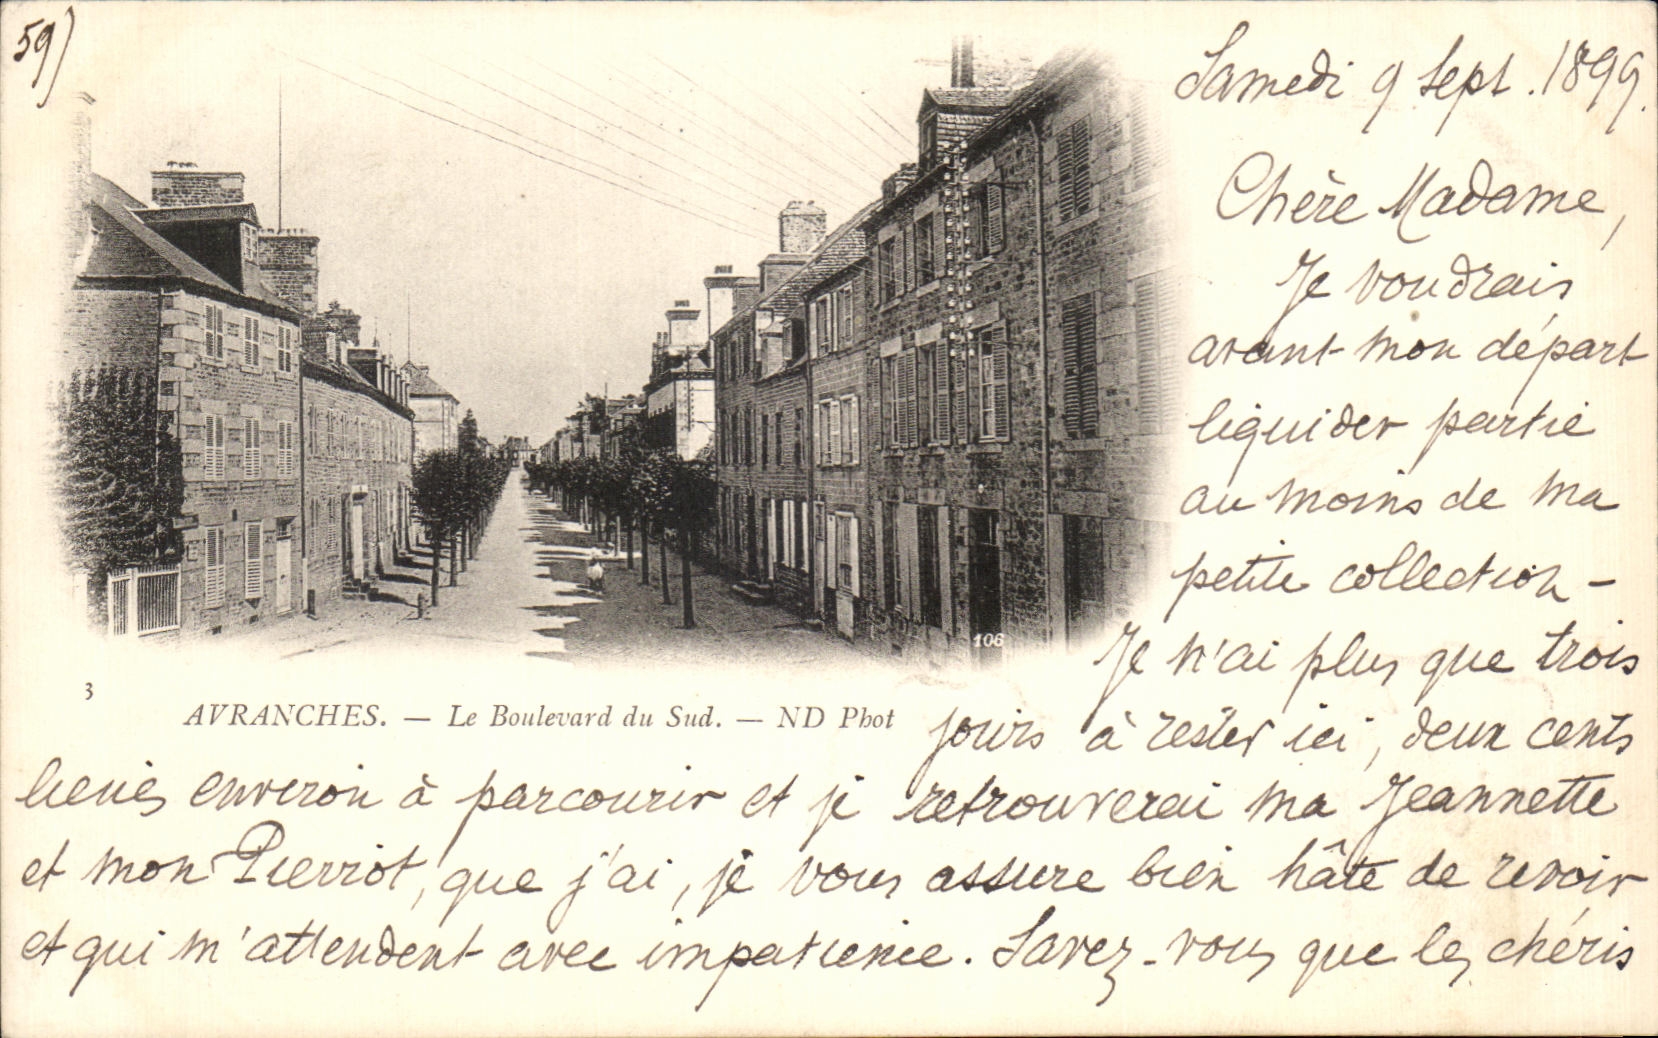 59)
Samedi 9 Sept. 1899.
Chère Madame,
Je voudrais
avant mon départ
liquider partie
au moins de ma
petite collection -
Je n'ai plus que trois
jours à rester ici, deux cents
lieues environ à parcourir et je retrouverai ma Jeannette
et mon Pierrot, que j'ai, je vous assure bien hâte de revoir
et qui m'attendent avec impatience. Savez-vous que les chéris
106
3
AVRANCHES. — Le Boulevard du Sud. — ND Phot